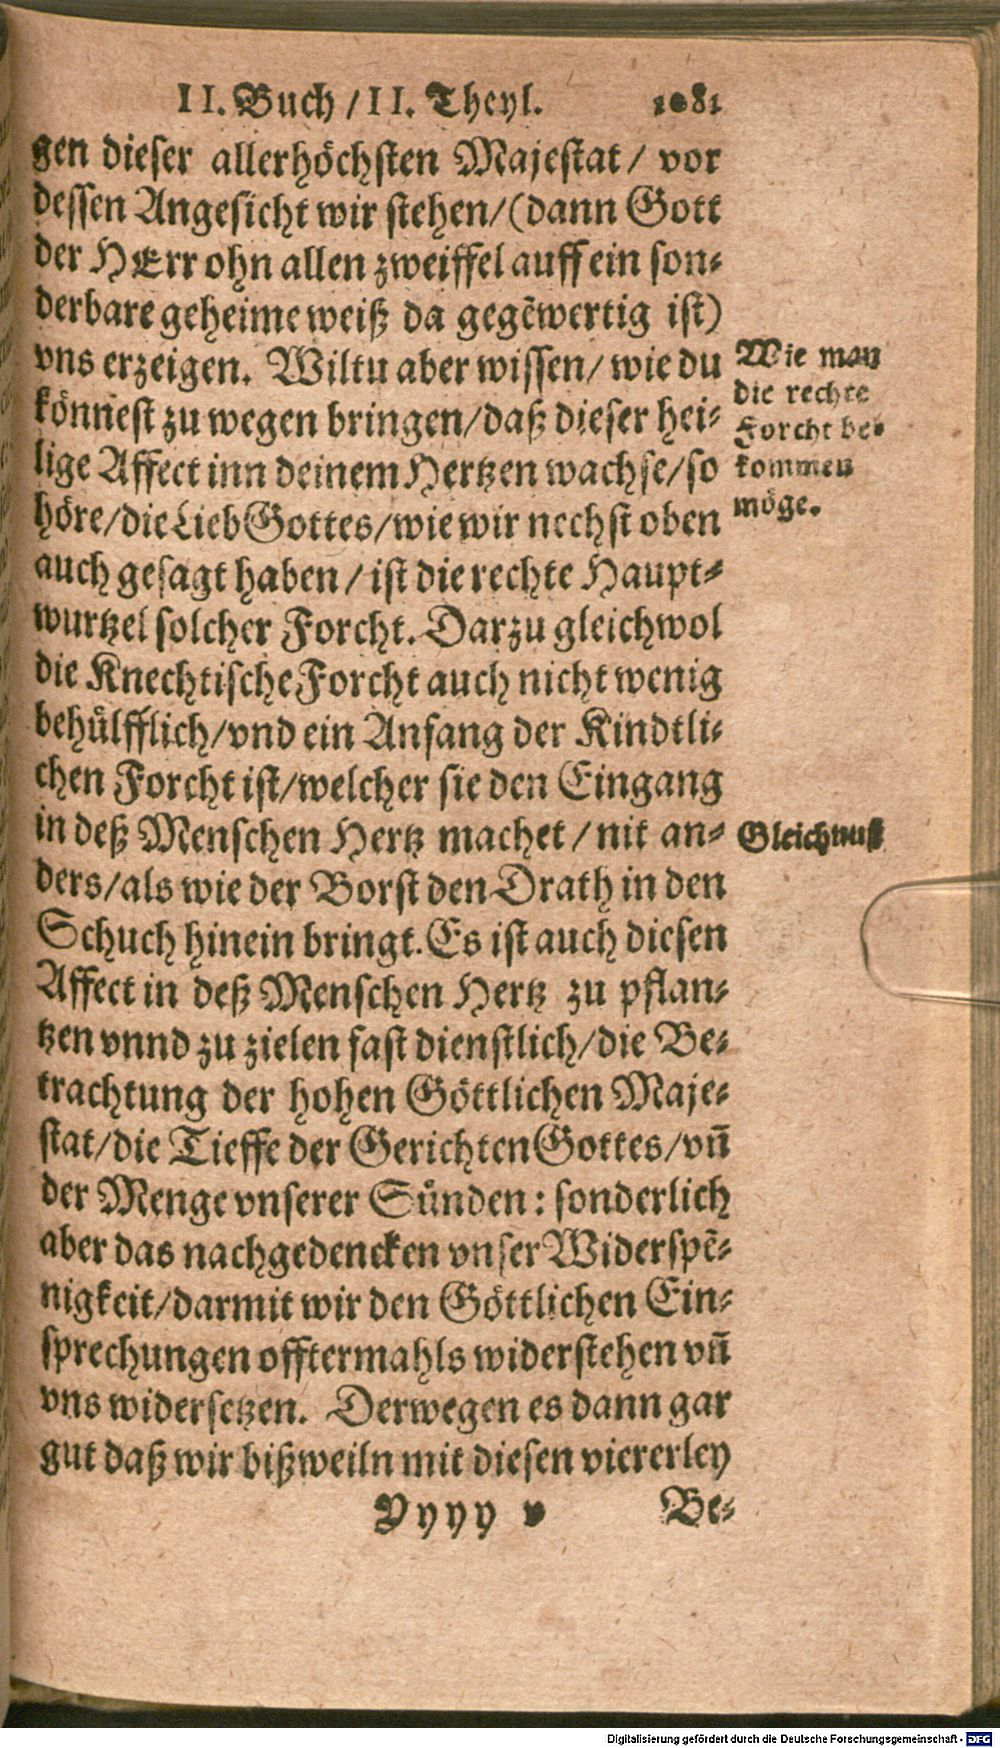 II. Buch / II. Theyl. 1081
gen dieser allerhöchsten Majestat / vor
dessen Angesicht wir stehen / (dann Gott
der HErr ohn allen zweiffel auff ein son⸗
derbare geheime weiß da gegẽwertig ist)
vns erzeigen. Wiltu aber wissen / wie du
könnest zu wegen bringen / daß dieser hei⸗
lige Affect inn deinem Hertzen wachse / so
höre / die Lieb Gottes / wie wir nechst oben
auch gesagt haben / ist die rechte Haupt⸗
wurtzel solcher Forcht. Darzu gleichwol
die Knechtische Forcht auch nicht wenig
behülfflich / vnd ein Anfang der Kindtli⸗
chen Forcht ist / welcher sie den Eingang
in deß Menschen Hertz machet / nit an⸗
ders / als wie der Borst den Drath in den
Schuch hinein bringt. Es ist auch diesen
Affect in deß Menschen Hertz zu pflan⸗
tzen vnnd zu zielen fast dienstlich / die Be⸗
trachtung der hohen Göttlichen Maje⸗
stat / die Tieffe der Gerichten Gottes / vñ
der Menge vnserer Sünden: sonderlich
aber das nachgedencken vnser Widerspẽ⸗
nigkeit / darmit wir den Göttlichen Ein⸗
sprechungen offtermahls widerstehen vñ
vns widersetzen. Derwegen es dann gar
gut daß wir bißweiln mit diesen viererley
Yyyy v Be⸗
Wie man
die rechte
Forcht be⸗
kommen
möge.
Gleichnuß
Digitalisierung gefördert durch die Deutsche Forschungsgemeinschaft - DFG